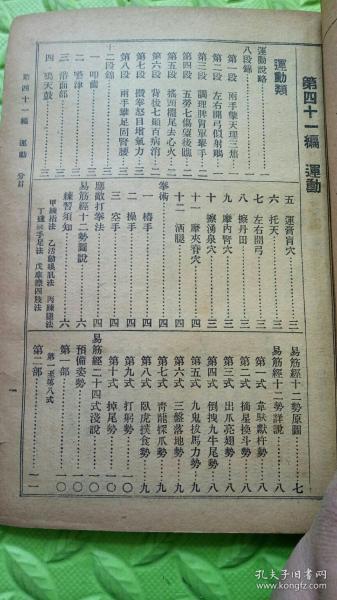 第四十一編 運動
運動類
運動說略 一
八段錦 一
第一段 兩手擎天理三焦 一
第二段 左右開弓似射鵰 一
第三段 調理脾胃單舉手 二
第四段 五勞七傷望後瞧 二
第五段 搖頭擺尾去心火 二
第六段 背後七顛百病消 二
第七段 攢拳怒目增氣力 二
第八段 兩手攀足固腎腰 三
十二段錦 三
一 叩齒 三
二 嚥津 三
三 浴面部 三
四 鳴天鼓 三
五 運膏肓穴 三
六 托天 三
七 左右開弓 三
八 擦丹田 三
九 摩內腎穴 三
十 擦湧泉穴 三
十一 摩夾脊穴 四
十二 洒腿 四
拳術 四
一 樁手 四
二 操手 四
三 空手 四
應敵打拳法 四
易筋經十二勢圖說 六
練習須知 六
甲練指法 乙活動喉肌法 丙練腿法
丁揉練手足法 戊摩擦四肢法
易筋經十二勢原圖 七
易筋經十二勢詳說 八
第一式 韋馱獻杵勢 八
第二式 摘星換斗勢 八
第三式 出爪亮翅勢 八
第四式 倒拽九牛尾勢 八
第五式 九鬼拔馬刀勢 九
第六式 三盤落地勢 九
第七式 青龍探爪勢 九
第八式 臥虎撲食勢 九
第九式 打躬勢 一〇
第十式 掉尾勢 一〇
易筋經二十四式淺說 一〇
預備姿勢 一〇
第一部 一〇
第一至第八式
第二部 一一
第四十一編 運動 分目
一
孔夫子旧书网